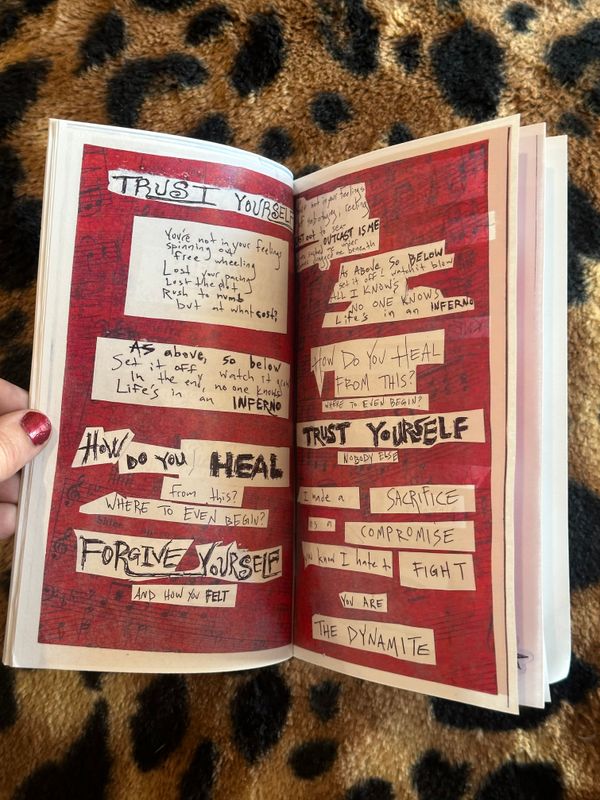 TRUST YOURSELF
You're not in your feelings
spinning out
free wheeling
Lost your pacing
Lost the plot
Rush to numb
but at what cost?
As above, so below
Set it off, watch it
In the end, no one knows
Life's in an INFERNO
How DO YOU HEAL
from this?
WHERE TO EVEN BEGIN?
FORGIVE YOURSELF
AND HOW YOU FELT
not in your feelings
feeling
OUTCAST IS ME
me under
me beneath
As Above, So BELOW
set it off! watch it blow
ALL I KNOWS
NO ONE KNOWS
Life's in an INFERNO
HOW DO YOU HEAL
FROM THIS?
WHERE TO EVEN BEGIN?
TRUST YOURSELF
NOBODY ELSE
I made a SACRIFICE
as a COMPROMISE
you know I hate to FIGHT
YOU ARE
THE DYNAMITE